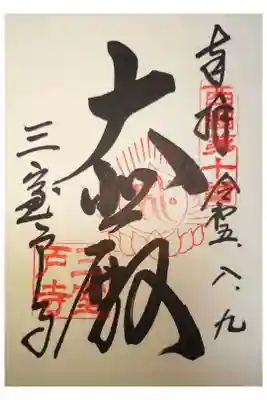 奉拝
八.九
西国第十番
大悲殿
三室戸寺
三室
戸寺